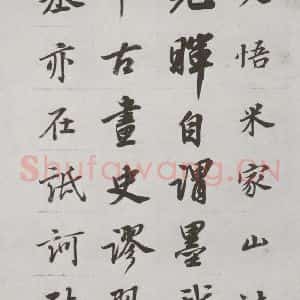 悟米家山
暉自謂墨
古畫史謬
亦在詆訶
Shufawang.CN